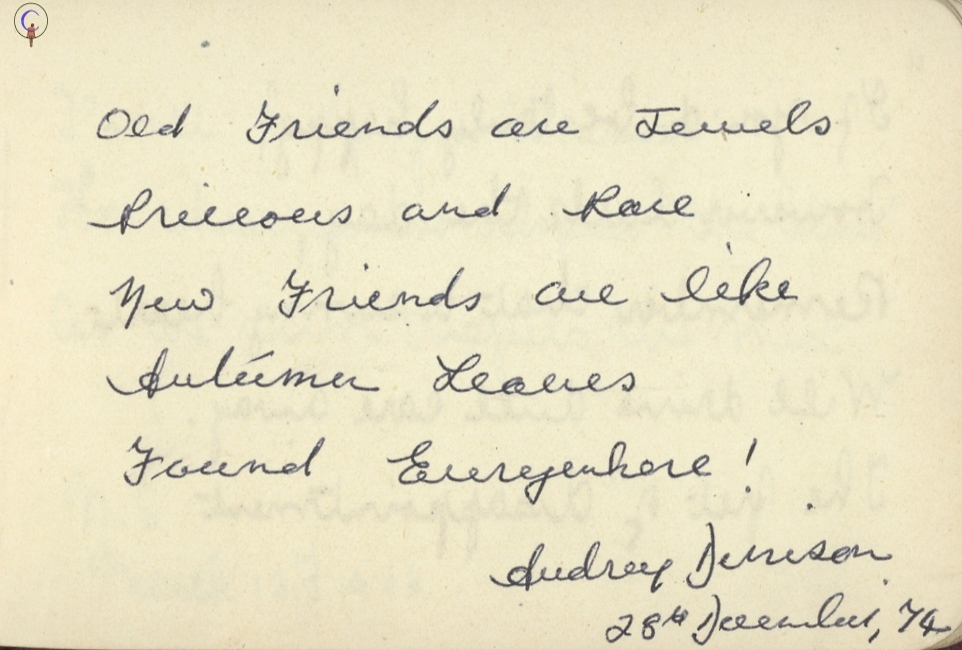 Old Friends are Jewels
Precious and Rare
New Friends are like
Autumn Leaves
Found Everywhere!
Audrey
28th December, 74